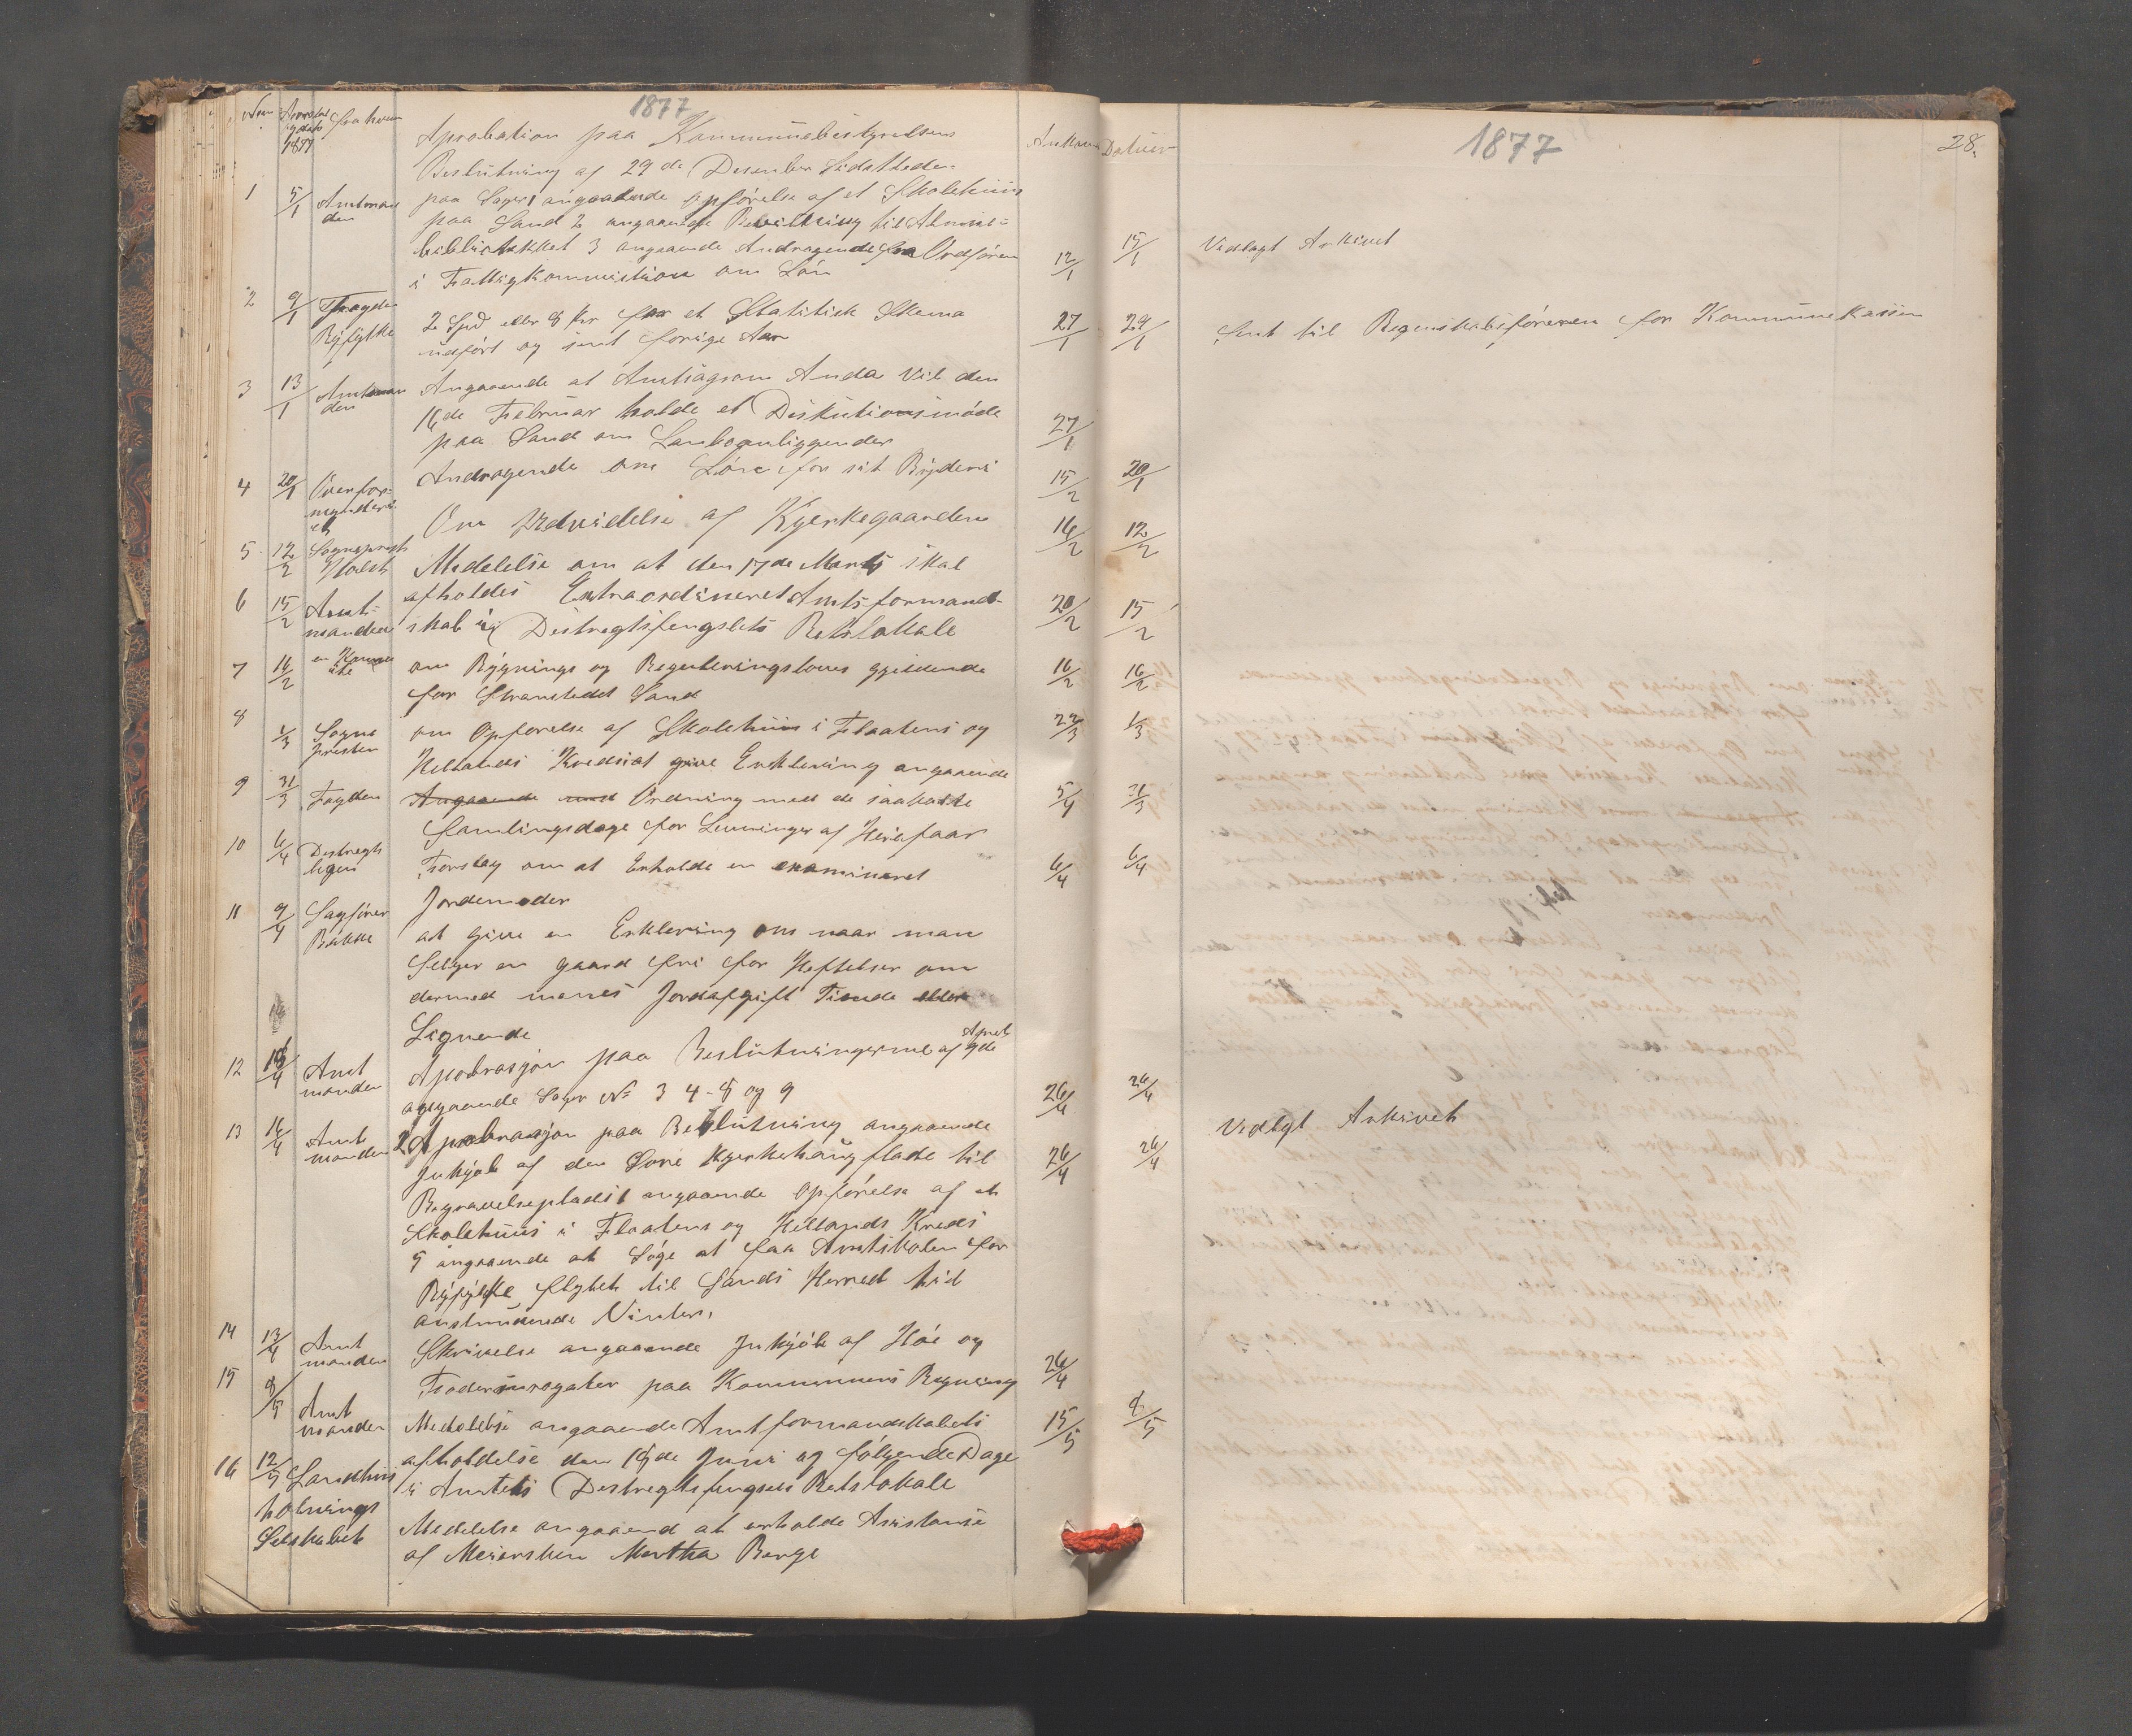 1877
fra hvem
Ankom Datum
1877
28.
Aprobation paa Kommunebestyrelsens
Beslutning af 29de Desember Sidstleden
1 5/1 Amtmanden paa Sager 1 angaaende opförelse af et Skolehuus
paa Sand 2 angaaende Bevilkning til Almue-
bibliothekket 3 angaaende Andragende fra Ordføreren
i Fattigkommistion om Lön 12/1 15/1 Vedlagt Arkivet
2 9/1 Fogden Ryfylke 2 Spd eller 8 kr for et Statistisk Skema
udfört og sent forrige Aar 27/1 29/1 Sent til Regnskabsföreren for Kommunekassen
3 13/1 Amtmanden Angaaende at Amtsagronom Anda vil den
16de Februar holde et Diskutionsmöde
paa Sand om Landboanliggender 27/1
4 20/1 Overformynderiet Andragende om Lön for sit Bryderi 15/2 20/1
5 12/2 Sogneprest Holst Om Udvidelse af Kyerkegaarden 16/2 12/2
6 15/2 Amtmanden Medelelse om at den 17de Marts skal
afholdes Extraordineret Amtsformand-
skab i Destregtsfengslets Retslokale 20/2 15/2
7 16/2 en Kommite om Bygnings og Reguleringslovens gjeldende
for Stranstedet Sand 16/2 16/2
8 1/3 Sogne presten om Opförelse af Skolehuus i Flaatens og
Hellands Kredsiat give Erklering angaaende 22/3 1/3
9 31/3 Fogden Angaaende med Ordning med de saakalte
Samlingsdage for Lemninger af Heiafaar 5/4 31/3
10 6/4 Destregts legen Forslag om at Erholde en examineret
Jordemoder 6/4 6/4
11 9/4 Sagförer Bakke at give en Erklering om naar man
Selger en gaard fri for Heftelser om
dermed menes Jordafgift Tiende eller
Lignende
12 Amt manden Apobrasjon paa Beslutningerne af 9de April
angaaende Sager No 3 4-8 og 9 26/4 26/4
13 16/4 Amt manden 2 Aprobrasjon paa Beslutning angaaende
Inkjöb af den Kyerkehaug flade til 26/4 26/4 Vedlgt Arkivet
Begravelsepladst angaaende opförelse af et
Skolehuus i Flaatens og Hellands Kreds
5 angaaende at Söge at faa Amtskolen for
Ryfylke flyttet til Sands Herred
anstundende Vinter.
14 13/4 Amt manden Skrivelse angaaende Inkjöb af Höe og
Fodersurogater paa Kommunens Regning 26/4
15 8/5 Amt manden Medelelse angaaende Amtformandskabets
afholdelse den 19de Juni og fölgende Dage
i Amtets Destregtsfengsels Retslokale 15/5 8/5
16 12/5 Landhuusholnings Selskabet Medelelse angaaend at erholde Asistanse
af Meiersken Martha Berge